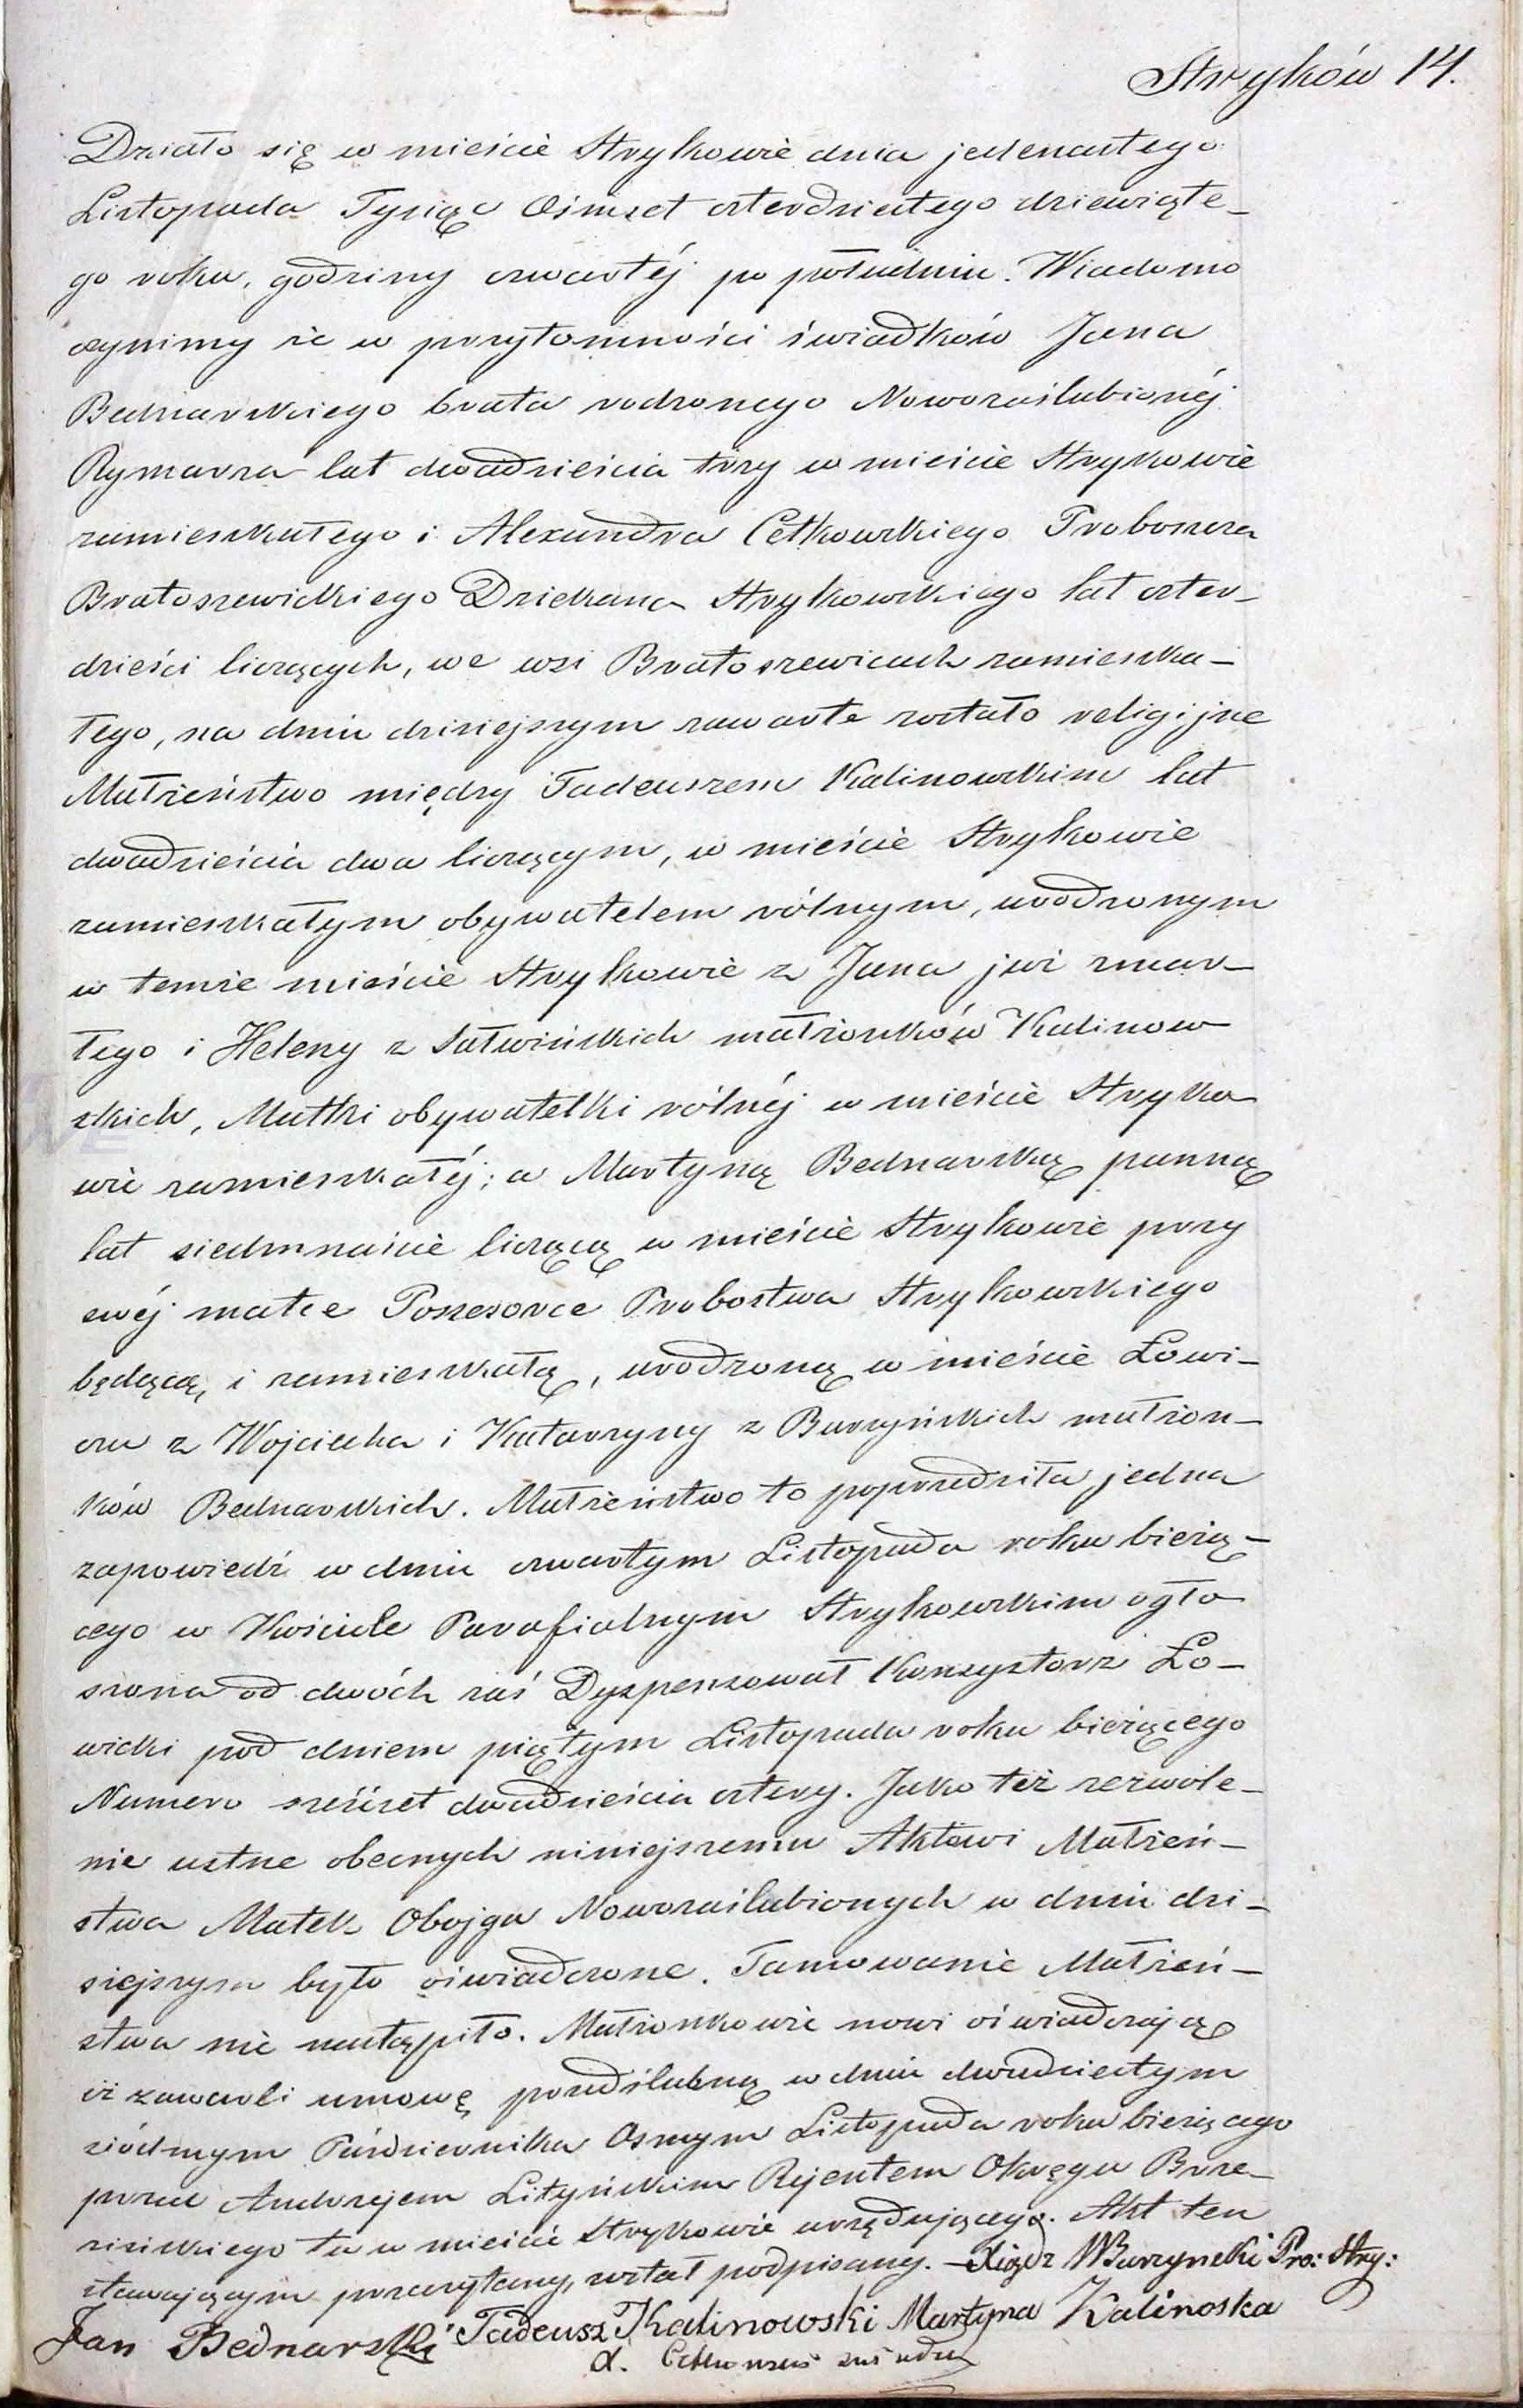 Stryków 14.
Działo się w mieście Strykowie dnia jedenastego
Listopada Tysiąc Ośmset czterdziestego dziewiąte-
go roku, godziny czwartéj po południu. Wiadomo
czynimy że w przytomności świadków Jana
Bednarskiego brata rodzonego Nowozaślubionéj
Rymarza lat dwadzieścia trzy w mieście Strykowie
zamieszkałego i Alexandra Cetkowskiego Proboszcza
Bratoszewickiego Dziekana Strykowskiego lat czter-
dzieści liczących, we wsi Bratoszewicach zamieszka-
łego, na dniu dzisiejszym zawarte zostało religijne
Małżeństwo między Tadeuszem Kalinowskim lat
dwadzieścia dwa liczącym, w mieście Strykowie
zamieszkałym obywatelem rólnym, urodzonym
w temże mieście Strykowie z Jana już zmar-
łego i Heleny z Sałwińskich małżonków Kalinow
skich, Matki obywatelki rólnéj w mieście Stryko
wie zamieszkałéj; a Martyną Bednarską panną
lat siedmnaście liczącą w mieście Strykowie przy
swéj matce Possesorce Probostwa Strykowskiego
będącą, i zamieszkałą, urodzoną w mieście Łowi-
czu z Wojciecha i Katarzyny z Burzyńskich małżon-
ków Bednarskich. Małżeństwo to poprzedziła jedna
zapowiedź w dniu czwartym Listopada roku bieżą-
cego w Kościele Parafialnym Strykowskim ogło
szona od dwóch zaś Dyspensował Konsystorz Ło-
wicki pod dniem piątym Listopada roku bieżącego
Numero sześćset dwadzieścia cztery. Jako też zezwole-
nie ustne obecnych niniejszemu Aktowi Małżeń-
stwa Matek Obojga Nowozaślubionych w dniu dzi-
siejszym było oświadczone. Tamowanie Małżeń-
stwa nie nastąpiło. Małżonkowie nowi oświadczają
iż zawarli umowę przedślubną w dniu dwudziestym
siódmym Października Osmym Listopada roku bieżącego
przed Andrzejem Lityńskim Rejentem Okręgu Brze-
zińskiego tu w mieście Strykowie urzędującego. Akt ten
stawającym przeczytany, został podpisany. — Xiądz WBurzyński Pro: Stry:
Jan Bednarski Tadeusz Kalinowski Martyna Kalinoska
A. Cetkowski